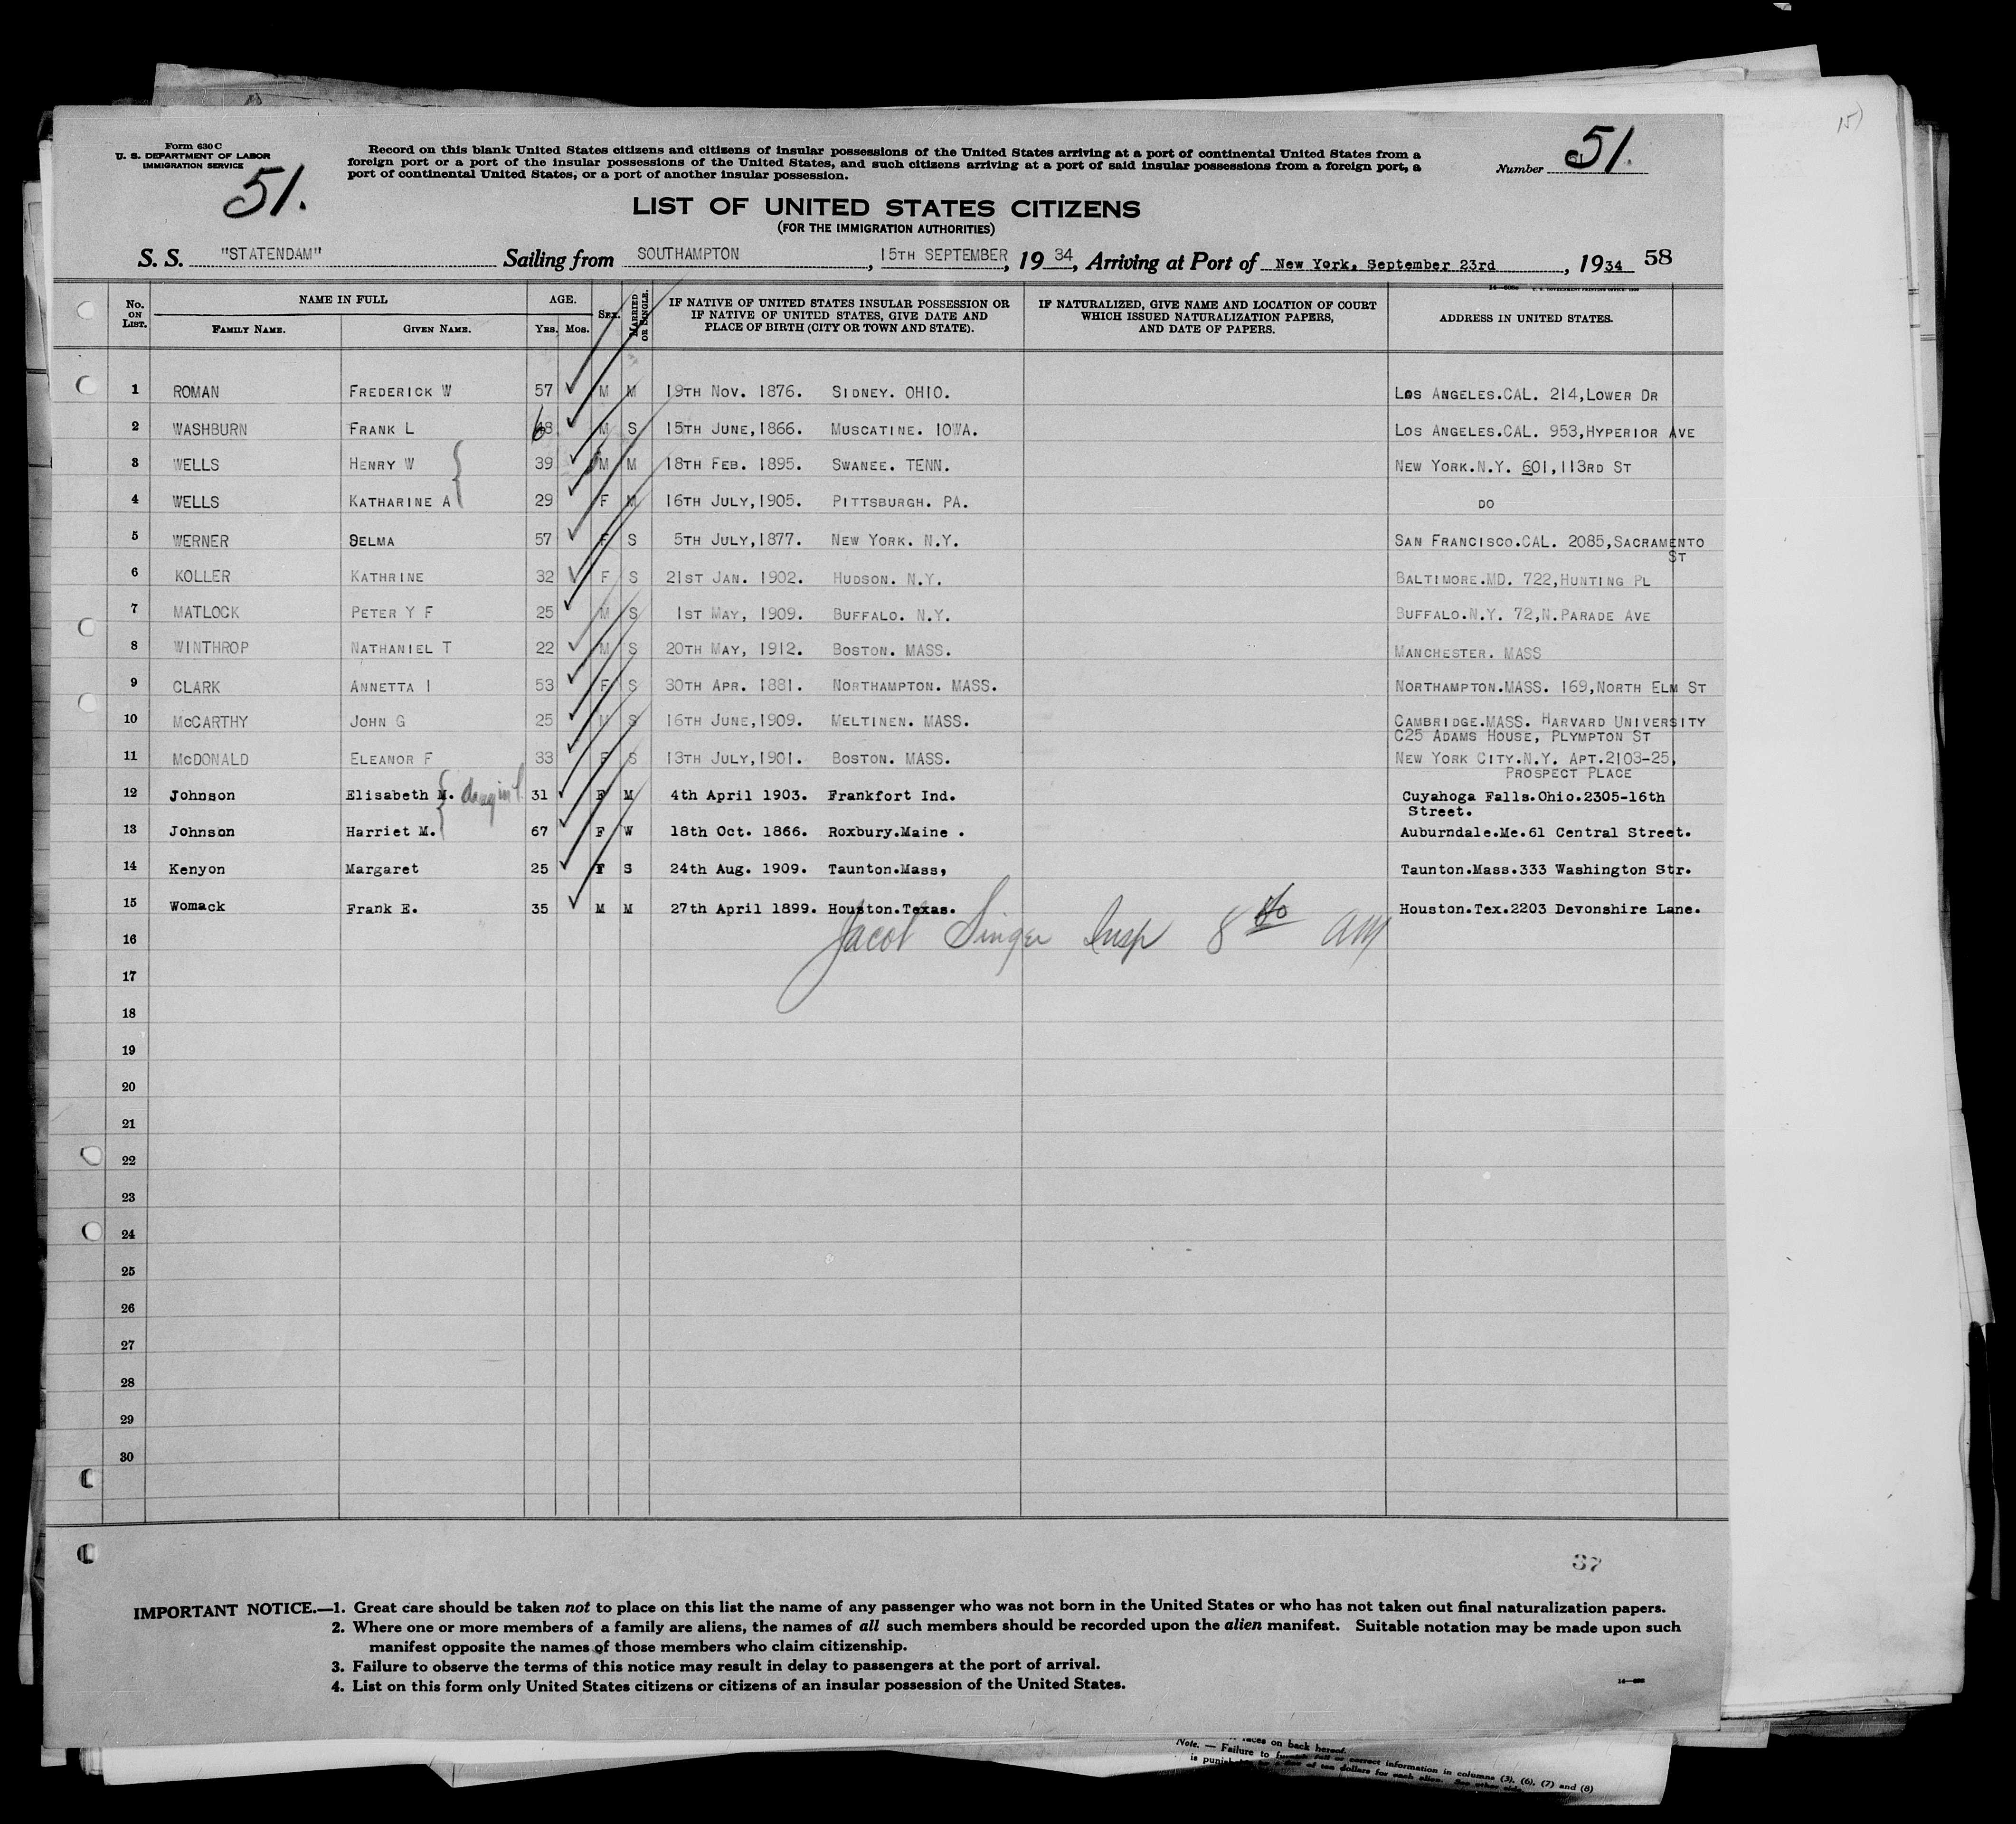 15)
Form 630 C
U. S. DEPARTMENT OF LABOR
IMMIGRATION SERVICE
51.
Record on this blank United States citizens and citizens of insular possessions of the United States arriving at a port of continental United States from a
foreign port or a port of the insular possessions of the United States, and such citizens arriving at a port of said insular possessions from a foreign port, a
port of continental United States, or a port of another insular possession.
Number 51.
LIST OF UNITED STATES CITIZENS
(FOR THE IMMIGRATION AUTHORITIES)
S. S. "STATENDAM" Sailing from SOUTHAMPTON, 15TH SEPTEMBER, 19 34, Arriving at Port of New York, September 23rd, 19 34 58
No. ON LIST. NAME IN FULL FAMILY NAME. GIVEN NAME. AGE. YRS. MOS. SEX. MARRIED OR SINGLE. IF NATIVE OF UNITED STATES INSULAR POSSESSION OR IF NATIVE OF UNITED STATES, GIVE DATE AND PLACE OF BIRTH (CITY OR TOWN AND STATE). IF NATURALIZED, GIVE NAME AND LOCATION OF COURT WHICH ISSUED NATURALIZATION PAPERS, AND DATE OF PAPERS. ADDRESS IN UNITED STATES.
1 ROMAN FREDERICK W 57 M M 19TH NOV. 1876. SIDNEY. OHIO. LOS ANGELES.CAL. 214,LOWER DR
2 WASHBURN FRANK L 68 M S 15TH JUNE,1866. MUSCATINE. IOWA. LOS ANGELES.CAL. 953,HYPERIOR AVE
3 WELLS HENRY W 39 M M 18TH FEB. 1895. SWANEE. TENN. NEW YORK.N.Y. 601,113RD ST
4 WELLS KATHARINE A 29 F M 16TH JULY,1905. PITTSBURGH. PA. DO
5 WERNER SELMA 57 F S 5TH JULY,1877. NEW YORK. N.Y. SAN FRANCISCO.CAL. 2085,SACRAMENTO
ST
6 KOLLER KATHRINE 32 F S 21ST JAN. 1902. HUDSON. N.Y. BALTIMORE.MD. 722,HUNTING PL
7 MATLOCK PETER Y F 25 M S 1ST MAY, 1909. BUFFALO. N.Y. BUFFALO.N.Y. 72,N.PARADE AVE
8 WINTHROP NATHANIEL T 22 M S 20TH MAY, 1912. BOSTON. MASS. MANCHESTER. MASS
9 CLARK ANNETTA I 53 F S 30TH APR. 1881. NORTHAMPTON. MASS. NORTHAMPTON.MASS. 169,NORTH ELM ST
10 McCARTHY JOHN G 25 M S 16TH JUNE,1909. MELTINEN. MASS. CAMBRIDGE.MASS. HARVARD UNIVERSITY
C25 ADAMS HOUSE, PLYMPTON ST
11 McDONALD ELEANOR F 33 F S 13TH JULY,1901. BOSTON. MASS. NEW YORK CITY.N.Y. APT.2103-25,
PROSPECT PLACE
12 Johnson Elisabeth M. 31 F M 4th April 1903. Frankfort Ind. Cuyahoga Falls.Ohio.2305-16th
Street.
13 Johnson Harriet M. 67 F W 18th Oct. 1866. Roxbury.Maine . Auburndale.Me.61 Central Street.
14 Kenyon Margaret 25 F S 24th Aug. 1909. Taunton.Mass, Taunton.Mass.333 Washington Str.
15 Womack Frank E. 35 M M 27th April 1899. Houston.Texas. Houston.Tex.2203 Devonshire Lane.
16 Jacob Singer Insp 8 40 AM
17
18
19
20
21
22
23
24
25
26
27
28
29
30
37
IMPORTANT NOTICE.—1. Great care should be taken not to place on this list the name of any passenger who was not born in the United States or who has not taken out final naturalization papers.
2. Where one or more members of a family are aliens, the names of all such members should be recorded upon the alien manifest. Suitable notation may be made upon such
manifest opposite the names of those members who claim citizenship.
3. Failure to observe the terms of this notice may result in delay to passengers at the port of arrival.
4. List on this form only United States citizens or citizens of an insular possession of the United States.
races on back hereof.
Note. — Failure to furnish full or correct information in columns (3), (6), (7) and (8)
is punishable by a fine of ten dollars for each alien. See other side.